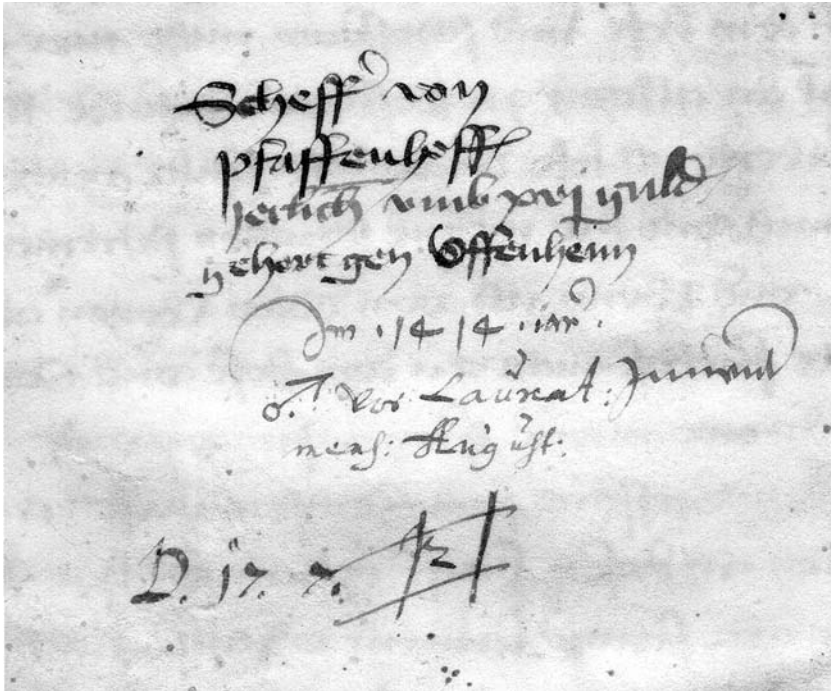 Scheff von
pfaffenheffen
jerlich vmb xvj guld
gehort gen Offenheim
Im 1414 iar.
♂. vor Laurat:
mens: August:
D. 17. 7. 12